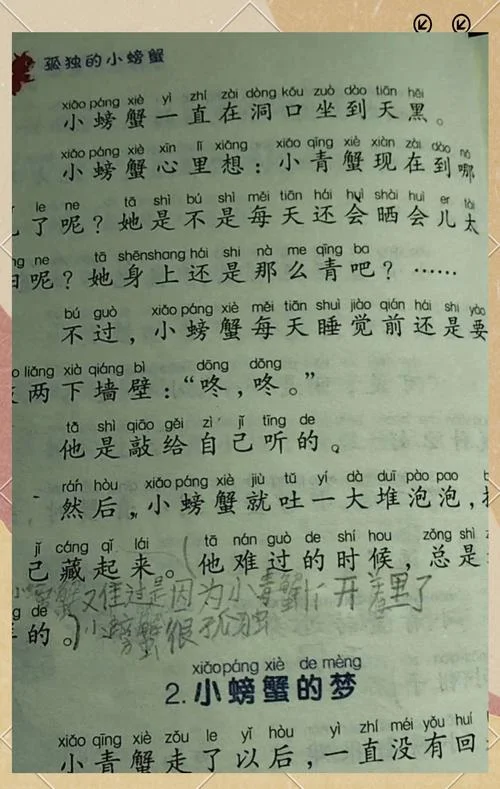 孤独的小螃蟹
xiǎo páng xiè yì zhí zài dòng kǒu zuò dào tiān hēi
小螃蟹一直在洞口坐到天黑。
xiǎo páng xiè xīn lǐ xiǎng xiǎo qīng xiè xiàn zài dào nǎ
小螃蟹心里想：小青蟹现在到哪
le ne tā shì bú shì měi tiān hái huì shài huì er tài
了呢？她是不是每天还会晒会儿太
ng ne tā shēnshang hái shi nà me qīng ba
呢？她身上还是那么青吧？……
bú guò xiǎo páng xiè měi tiān shuì jiào qián hái shi yào
不过，小螃蟹每天睡觉前还是要
liǎng xià qiáng bì dōng dōng
两下墙壁：“咚，咚。”
tā shì qiāo gěi zì jǐ tīng de
他是敲给自己听的。
rán hòu xiǎo páng xiè jiù tǔ yí dà duī pào pao b
然后，小螃蟹就吐一大堆泡泡，
jǐ cáng qǐ lái tā nán guò de shí hou zǒng shì
己藏起来。他难过的时候，总是
小螃蟹又难过是因为小青蟹 开 了
de
的。
小螃蟹很孤独
xiǎo páng xiè de mèng
2.小螃蟹的梦
xiǎo qīng xiè zǒu le yǐ hòu yì zhí méi yǒu huí
小青蟹走了以后，一直没有回